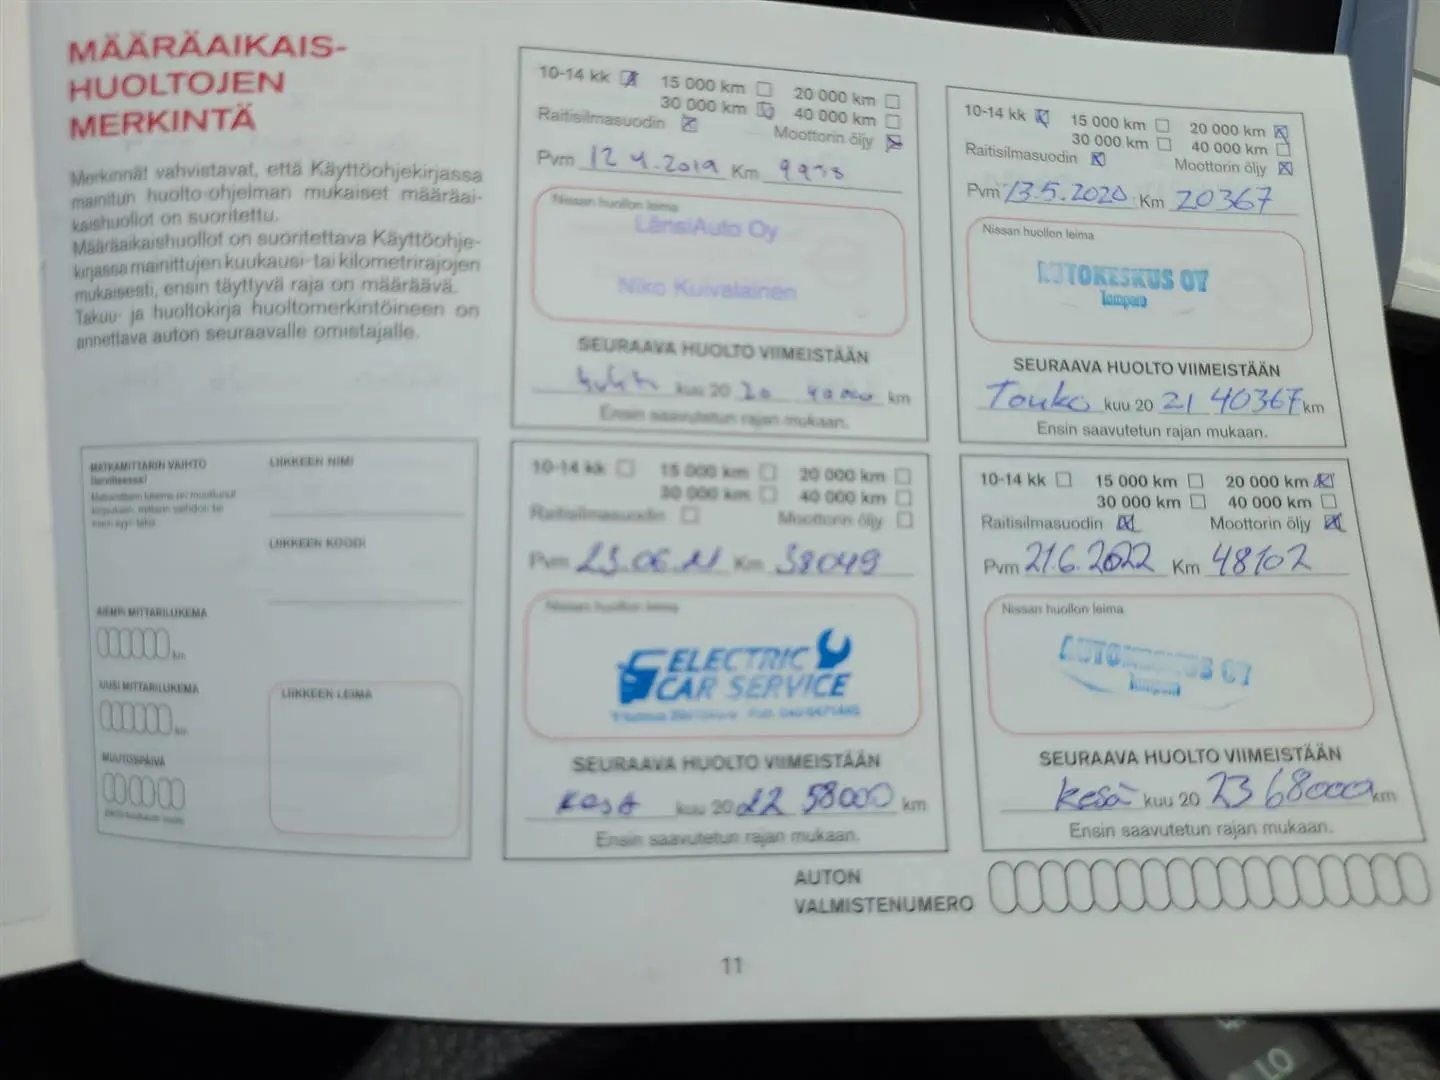 MÄÄRÄAIKAIS-
HUOLTOJEN
MERKINTÄ
Merkinnät vahvistavat, että Käyttöohjekirjassa
mainitun huolto-ohjelman mukaiset määräai-
kaishuollot on suoritettu.
Määräaikaishuollot on suoritettava Käyttöohje-
kirjassa mainittujen kuukausi- tai kilometrirajojen
mukaisesti, ensin täyttyvä raja on määräävä.
Takuu- ja huoltokirja huoltomerkintöineen on
annettava auton seuraavalle omistajalle.
MATKAMITTARIN VAIHTO
LIIKKEEN NIMI
LIIKKEEN KOODI
AIEMPI MITTARILUKEMA
km
UUSI MITTARILUKEMA
km
MUUTOSPÄIVÄ
LIIKKEEN LEIMA
10-14 kk 15 000 km 20 000 km
30 000 km 40 000 km
Raitisilmasuodin Moottorin öljy
Pvm 12.4.2019 Km
Nissan huollon leima
LänsiAuto Oy
Niko Kuivalainen
SEURAAVA HUOLTO VIIMEISTÄÄN
huhti kuu 20 20 40000 km
Ensin saavutetun rajan mukaan.
10-14 kk 15 000 km 20 000 km
30 000 km 40 000 km
Raitisilmasuodin Moottorin öljy
Pvm 13.5.2020 Km 20367
Nissan huollon leima
AUTOKESKUS OY
Tampere
SEURAAVA HUOLTO VIIMEISTÄÄN
Touko kuu 20 21 40367 km
Ensin saavutetun rajan mukaan.
10-14 kk 15 000 km 20 000 km
30 000 km 40 000 km
Raitisilmasuodin Moottorin öljy
Pvm 23.06.21 Km 38049
Nissan huollon leima
ELECTRIC
CAR SERVICE
SEURAAVA HUOLTO VIIMEISTÄÄN
Kesä kuu 20 22 58000 km
Ensin saavutetun rajan mukaan.
10-14 kk 15 000 km 20 000 km
30 000 km 40 000 km
Raitisilmasuodin Moottorin öljy
Pvm 21.6.2022 Km 48102
Nissan huollon leima
AUTOKESKUS OY
Tampere
SEURAAVA HUOLTO VIIMEISTÄÄN
Kesä kuu 20 23 68000 km
Ensin saavutetun rajan mukaan.
AUTON
VALMISTENUMERO
11
LO